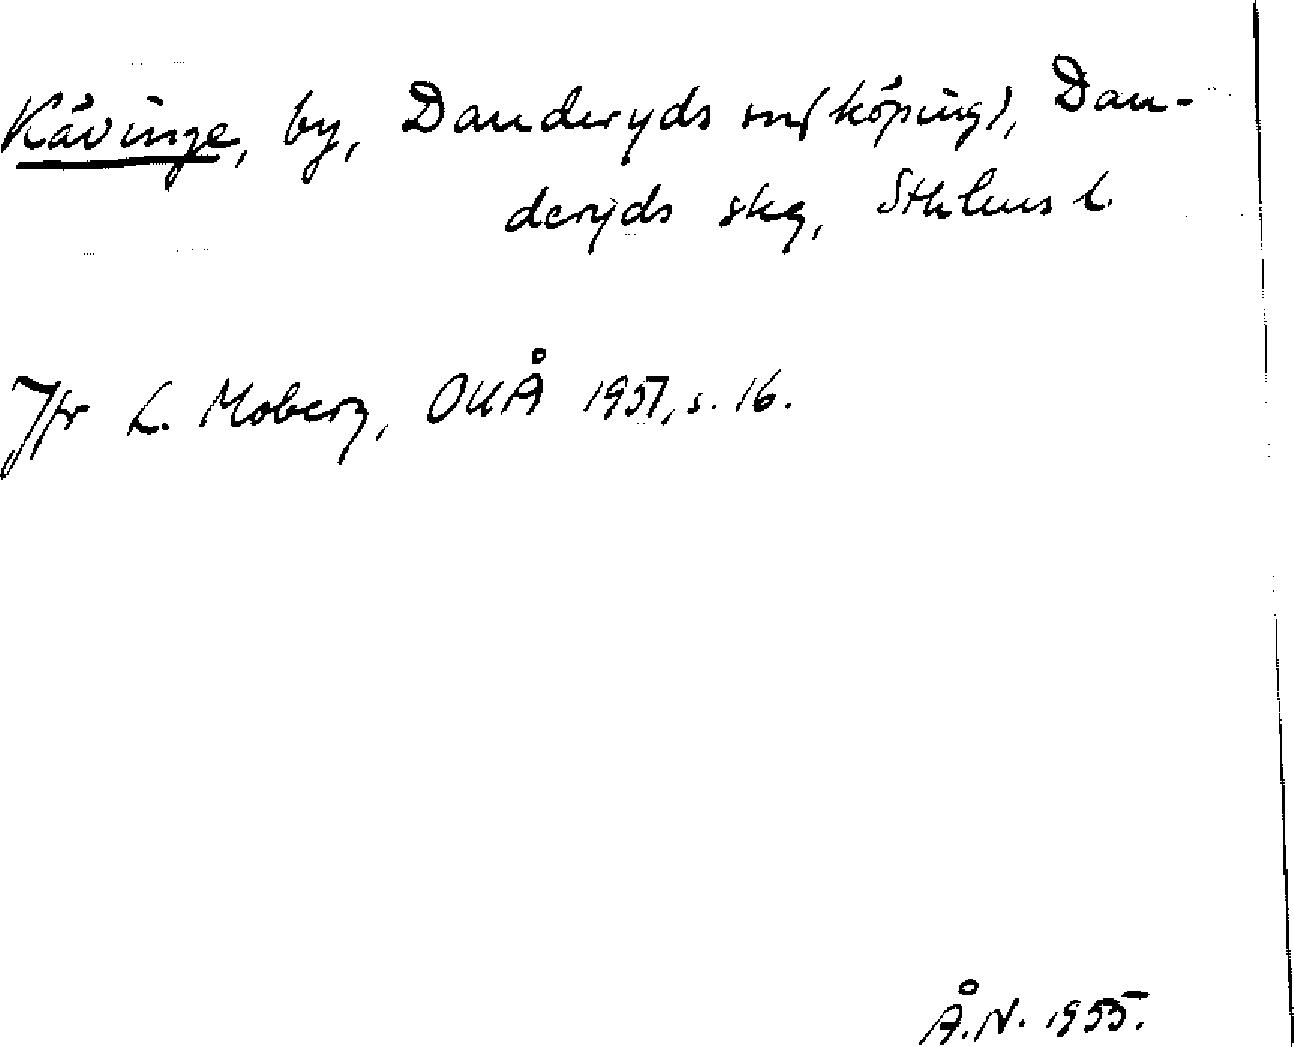 Kävinge, by, Danderyds sn (köping), Dan-
deryds skg, Sthlms l.
Jfr L. Moberg, OUÅ 1951, s. 16.
Å.N. 1955.